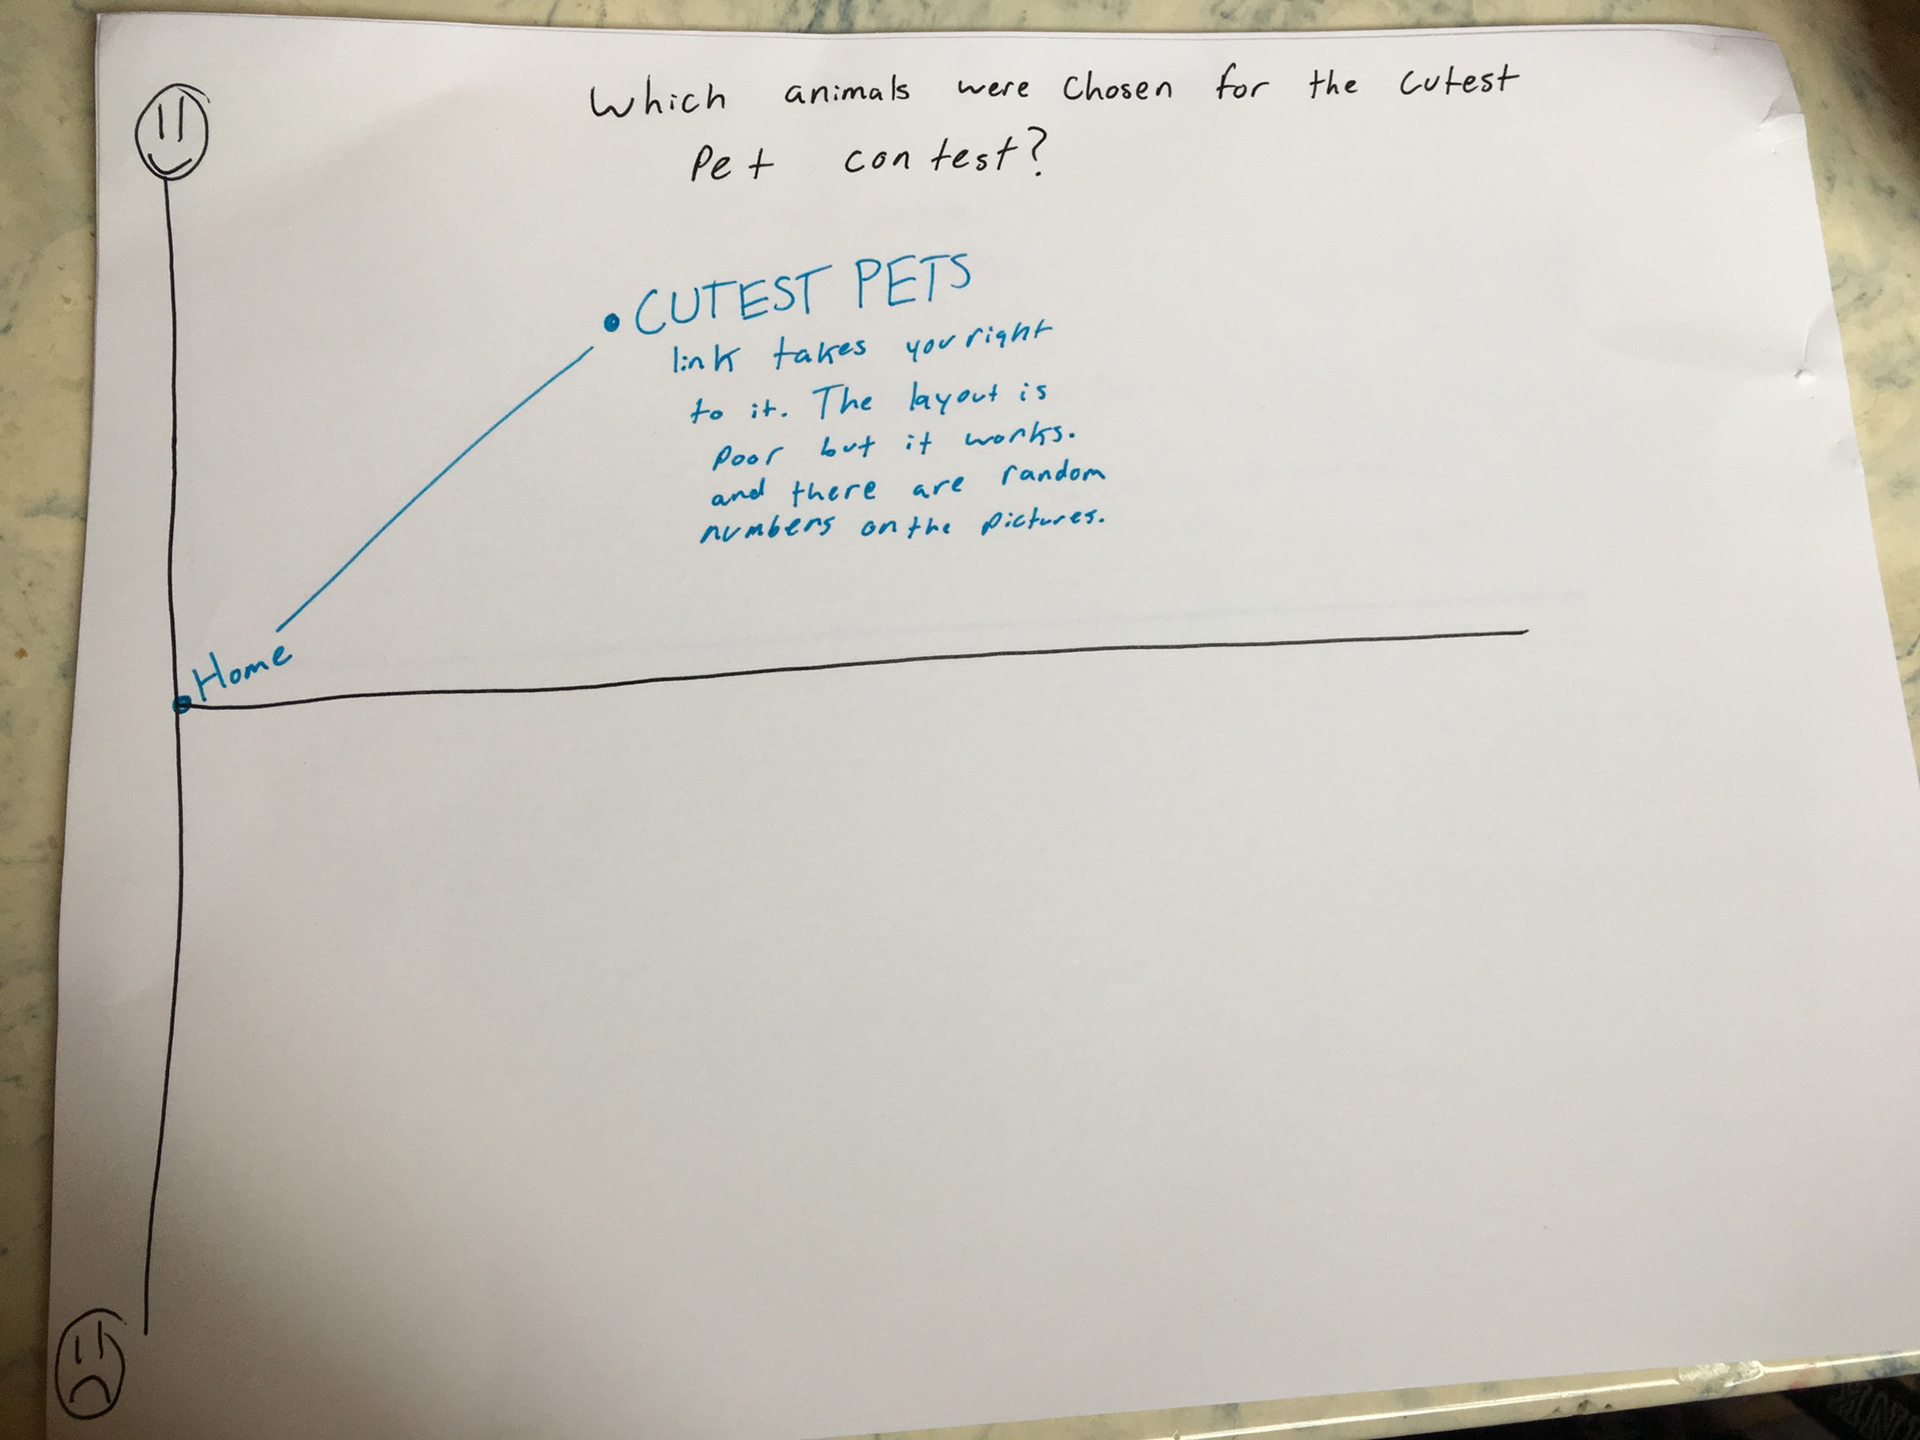 Which animals were chosen for the cutest
Pet contest?
CUTEST PETS
link takes you right
to it. The layout is
poor but it works.
and there are random
numbers on the pictures.
Home